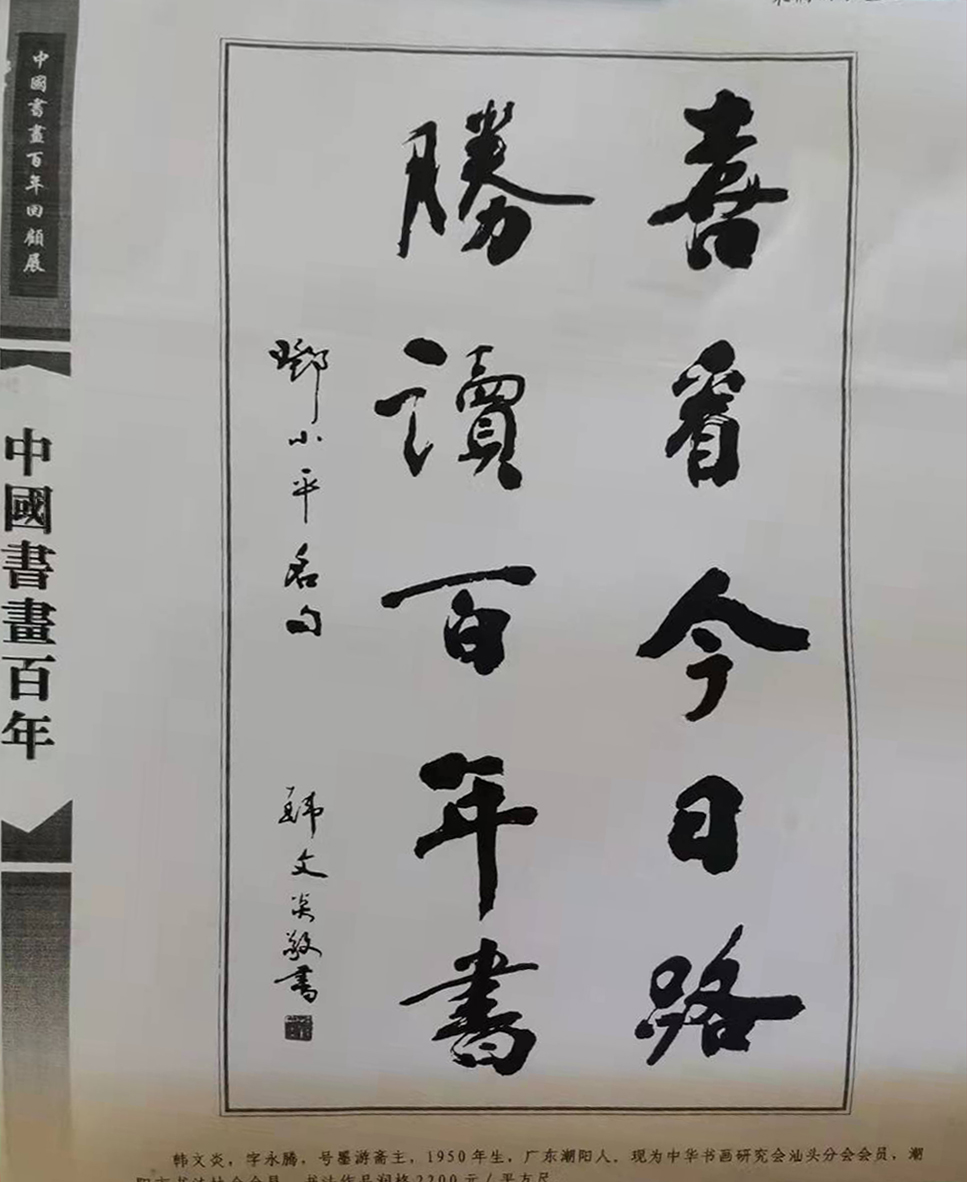 喜看今日路
勝讀百年書
鄧小平名句
韩文炎敬書
中國書畫百年回顧展
中國書畫百年
韩文炎，字永腾，号墨游斋主，1950年生，广东潮阳人。现为中华书画研究会汕头分会会员，潮
阳市书法协会会员。书法作品润格2200元/平方尺